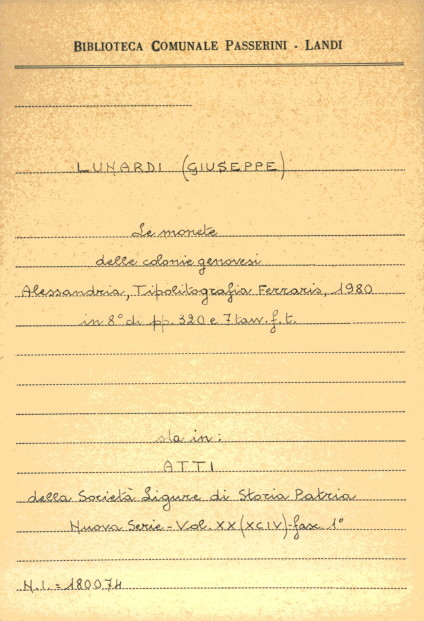 BIBLIOTECA COMUNALE PASSERINI - LANDI
LUNARDI (GIUSEPPE)
Le monete
delle colonie genovesi
Alessandria, Tipolitografia Ferraris, 1980
in 8° di pp. 320 e 7 tav. f. t.
sta in:
ATTI
della Società Ligure di Storia Patria
Nuova Serie - Vol. XX (XCIV) - fasc. 1°
N.I. = 180074